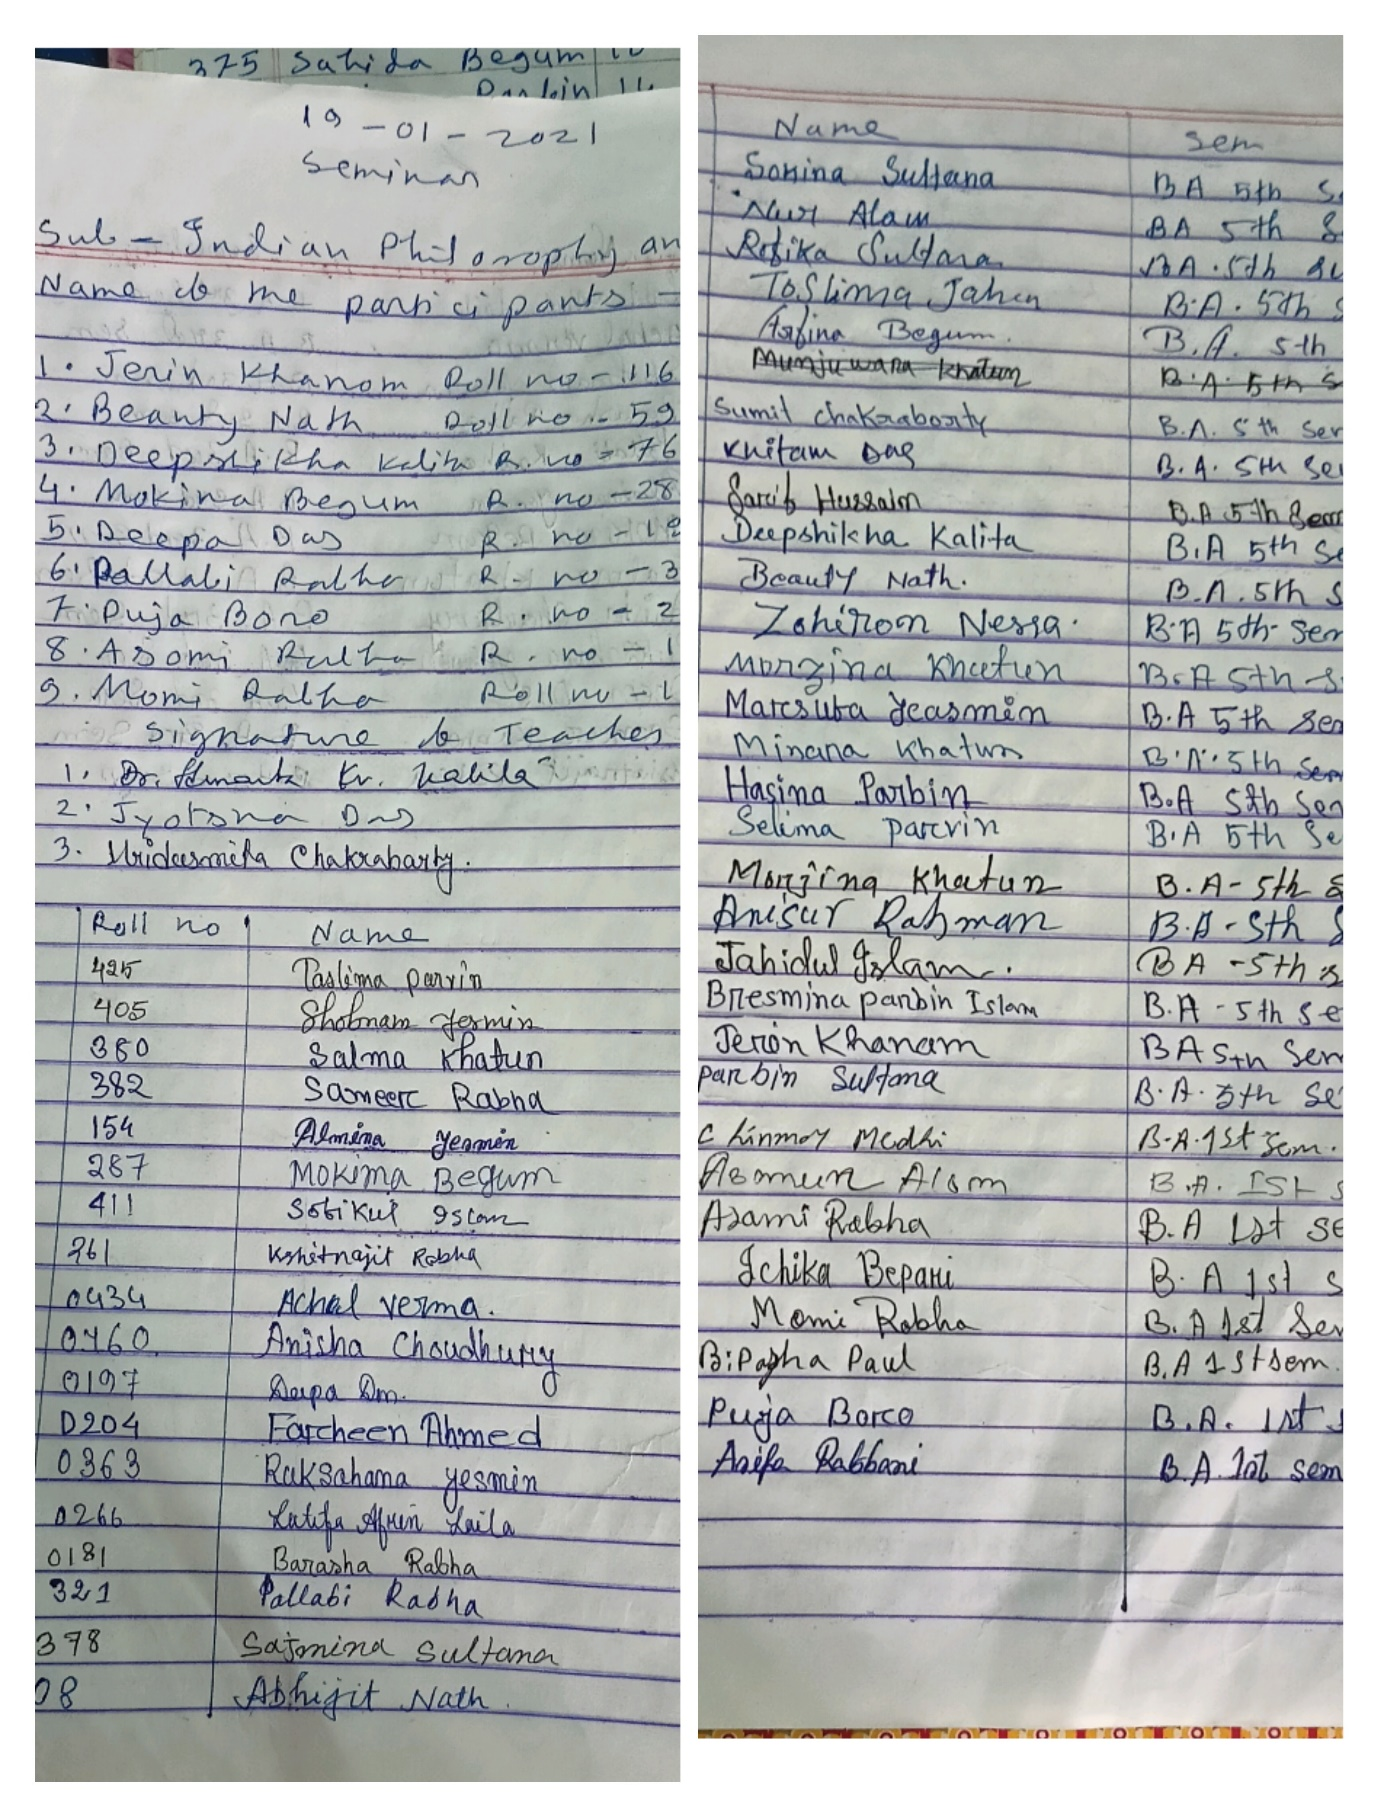 375 Sahida Begum
19-01-2021
Seminar
Sub - Indian Philosophy an
Name of the participants -
1. Jerin Khanom Roll no - 116
2. Beauty Nath Roll no - 59
3. Deepshikha Kalita R. no - 76
4. Mokima Begum R. no - 28
5. Deepa Das R. no - 19
6. Pallabi Rabha R. no - 3
7. Puja Boro R. no - 2
8. Asomi Rabha R. no - 1
9. Momi Rabha Roll no - 1
Signature of Teacher
1. Dr. Kr. Kalita
2. Jyotsna Das
3. Hridusmita Chakrabarty.
Roll no Name
425 Taslima parvin
405 Shobnam Yesmin
380 Salma Khatun
382 Sameer Rabha
154 Almina Yesmin
287 Mokima Begum
411 Sofikul Islam
261 Kshitnajit Rabha
0434 Achal verma.
0460 Anisha Choudhury
0197 Deepa Das.
0204 Farheen Ahmed
0363 Ruksahana Yesmin
0266 Latifa Afrin Laila
0181 Barasha Rabha
321 Pallabi Rabha
378 Sajmina Sultana
08 Abhijit Nath.
Name Sem
Sonina Sultana BA 5th S
Nur Alam BA 5th S
Rofika Sultana BA. 5th
Toslima Jahan B.A. 5th S
Asfina Begum. B.A. 5th
Munjuwara Khatun B.A. 5th S
Sumit Chakraborty B.A. 5th Sem
Khitam Das B.A. 5th Se
Hussain B.A 5th Sem
Deepshikha Kalita B.A 5th Se
Beauty Nath. B.A. 5th S
Zohiron Nessa. B.A 5th Sem
Morzina Khatun B.A 5th S
Marsuta Yeasmin B.A 5th Sem
Minara Khatun B.A. 5th Sem
Hasina Parbin B.A 5th Sem
Selima parvin B.A 5th Se
Monjina Khatun B.A - 5th S
Anisur Rahman B.A - 5th S
Jahidul Islam. BA - 5th S
Bresmina parbin Islam B.A - 5th Se
Jerin Khanam BA 5th Sem
parbin Sultana B.A. 5th Se
Chinmoy Medhi B.A. 1st Sem.
Asomun Alom B.A. Ist S
Asami Rabha B.A 1st se
Ichika Bepari B.A 1st S
Momi Rabha B.A 1st Sem
Bipasha Paul B.A 1st sem.
Puja Boro B.A. 1st s
Asifa Rabbani B.A. 1st sem